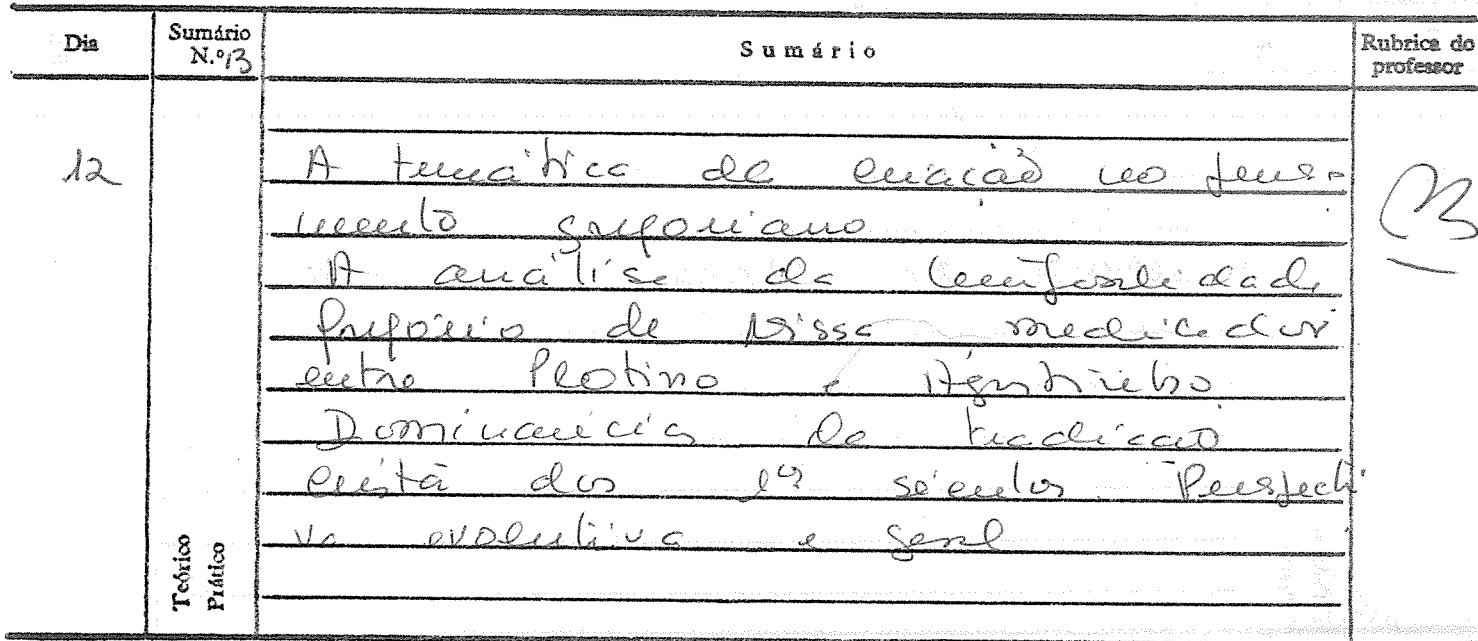 Dia
Sumário N.º 13
Sumário
Rubrica do professor
12
A temática da criação no pensa-
mento gregoriano
A análise da temporalidade
Gregório de Nissa mediador
entre Plotino e Agostinho
Dominância da tradição
cristã dos 1ºs séculos. Perspecti
va evolutiva e geral
Teórico
Prático